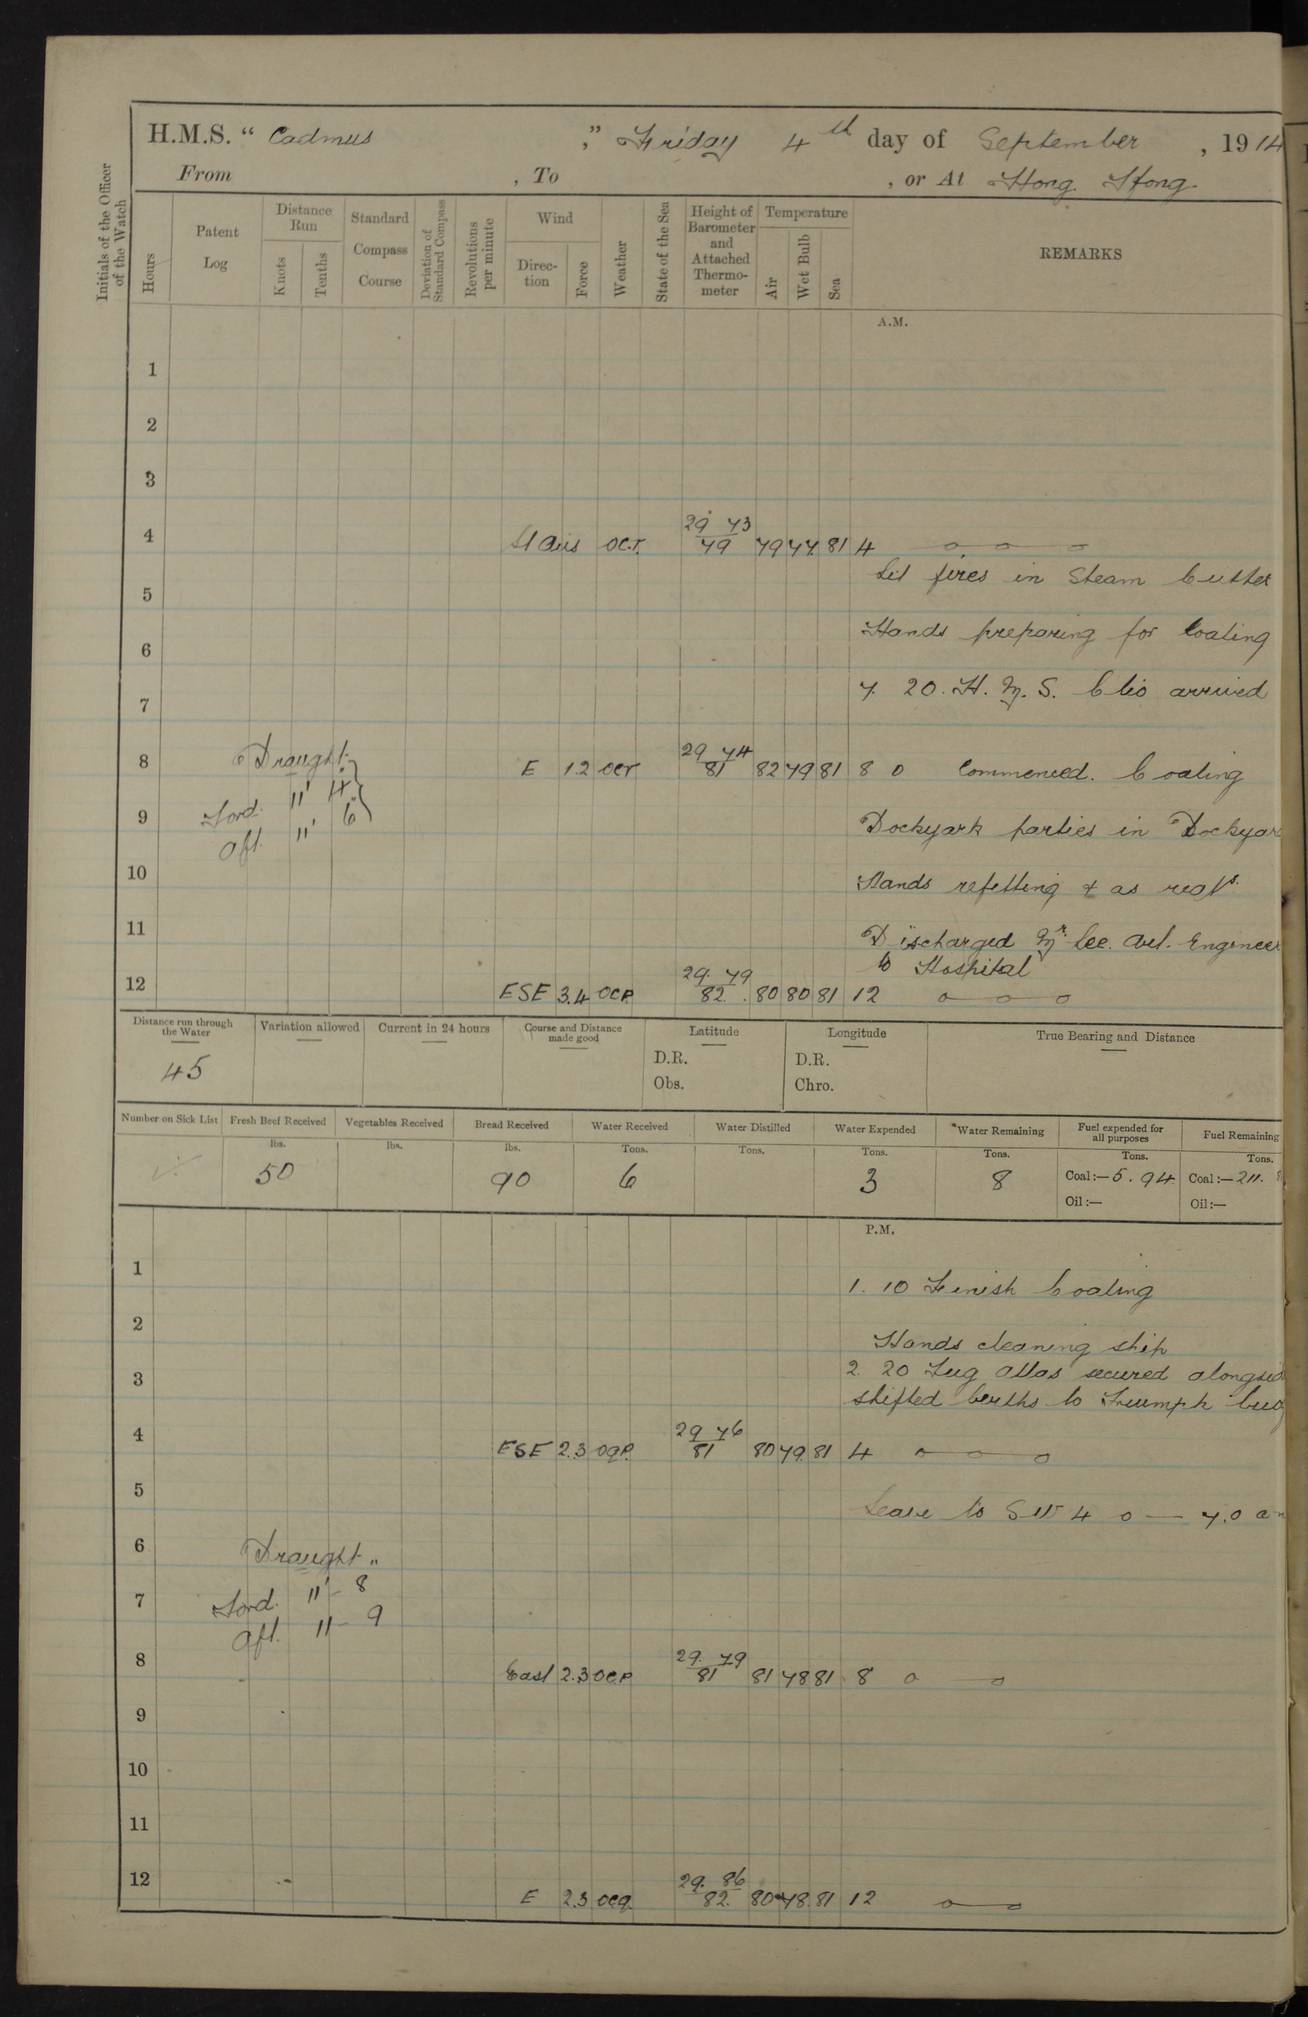 H.M.S. " Cadmus ," Friday 4th day of September , 1914
From , To , or At Hong Kong
Initials of the Officer of the Watch
Hours
Patent Log
Distance Run
Knots
Tenths
Standard Compass Course
Deviation of Standard Compass
Revolutions per minute
Wind
Direction
Force
Weather
State of the Sea
Height of Barometer and Attached Thermometer
Temperature
Air
Wet Bulb
Sea
REMARKS
A.M.
1
2
3
4 Airs 29 73 79 79 77 81 4
Lit fires in Steam Cutter
5
Hands preparing for Coaling
6
7. 20. H. M. S. Clio arrived
7
8 E 1.2 29 74 81 82 79 81 8 0 Commenced. Coaling
Draught.
Ford. 11' 4"
Aft. 11' 6"
9
Dockyark parties in
10
Hands refitting & as reqts.
11
Discharged Mr. Lee. Engineer
to Hospital
12 ESE 3.4 OCP 29. 79 82. 80 80 81 12
Distance run through the Water
45
Variation allowed
Current in 24 hours
Course and Distance made good
Latitude
D.R.
Obs.
Longitude
D.R.
Chro.
True Bearing and Distance
Number on Sick List
Fresh Beef Received
lbs.
50
Vegetables Received
lbs.
Bread Received
lbs.
90
Water Received
Tons.
6
Water Distilled
Tons.
Water Expended
Tons.
3
Water Remaining
Tons.
8
Fuel expended for all purposes
Tons.
Coal:— 5. 94
Oil:—
Fuel Remaining
Tons.
Coal:— 211.
Oil:—
P.M.
1
1. 10 Finish Coaling
2
Hands cleaning ship
2. 20 Tug Atlas secured
3
shifted berths to Triumph
4 ESE 2.3 29 76 81 80 79 81 4
5
Leave to 4 0 — 7.0
6
Draught
Ford. 11' - 8
7
Aft. 11 - 9
8 East 2.3 OCP 29. 79 81 81 78 81 8
9
10
11
12 E 2.3 OCQ. 29. 86 82. 80 78 81 12